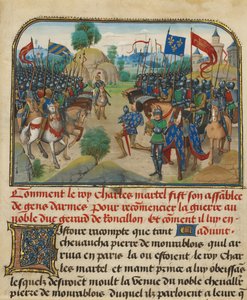 Comment le roy Charles martel fist son assablee
de gens darmes Pour recomencier la guerre au
noble duc gerard de Roncillon Et coment il luy en
Istoire racompte que tant aduint
cheuaucha pierre de montrablois quil ar
riua en paris la ou estoient le roy Char
les martel et maint prince a luy obeissas
lesquelz deuisoient moult la venue du noble cheualier
pierre de montrablois Duquel ilz parloient a leur